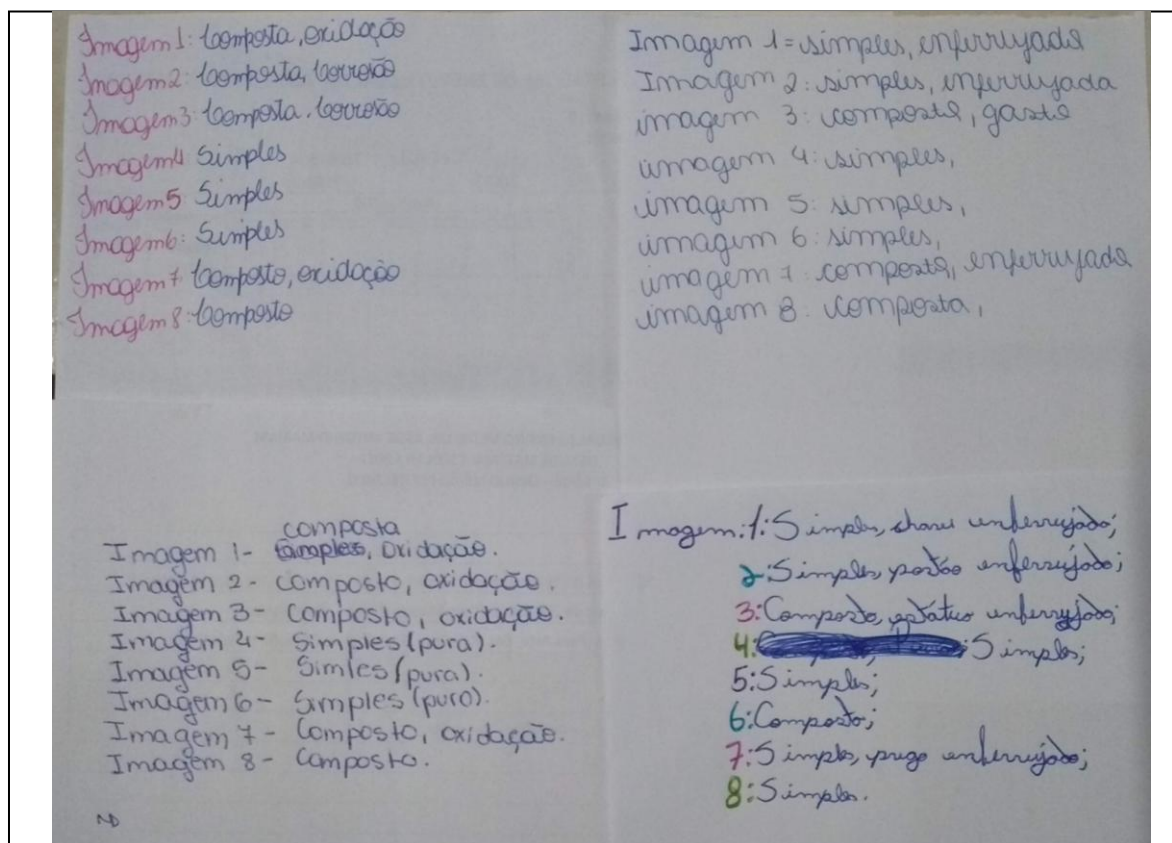 Imagem 1: Composta, oxidação
Imagem 2: Composta, Corrosão
Imagem 3: Composta. Corrosão
Imagem 4 Simples
Imagem 5: Simples
Imagem 6: Simples
Imagem 7: Composto, oxidação
Imagem 8: Composto
Imagem 1=simples, enferrujada
Imagem 2: simples, enferrujada
imagem 3: composta, gasta
imagem 4: simples,
imagem 5: simples,
imagem 6: simples,
imagem 7: composta, enferrujada
imagem 8: composta,
composta
Imagem 1- oxidação.
Imagem 2- composto, oxidação.
Imagem 3- Composto, oxidação.
Imagem 4- Simples (pura).
Imagem 5- Simles (pura).
Imagem 6- Simples (puro).
Imagem 7- Composto, oxidação.
Imagem 8- Composto.
Imagem:1:Simples, chave enferrujado;
2:Simples, portão enferrujado;
3:Composto, enferrujado;
4: Simples;
5:Simples;
6:Composto;
7:Simples, prego enferrujado;
8:Simples.